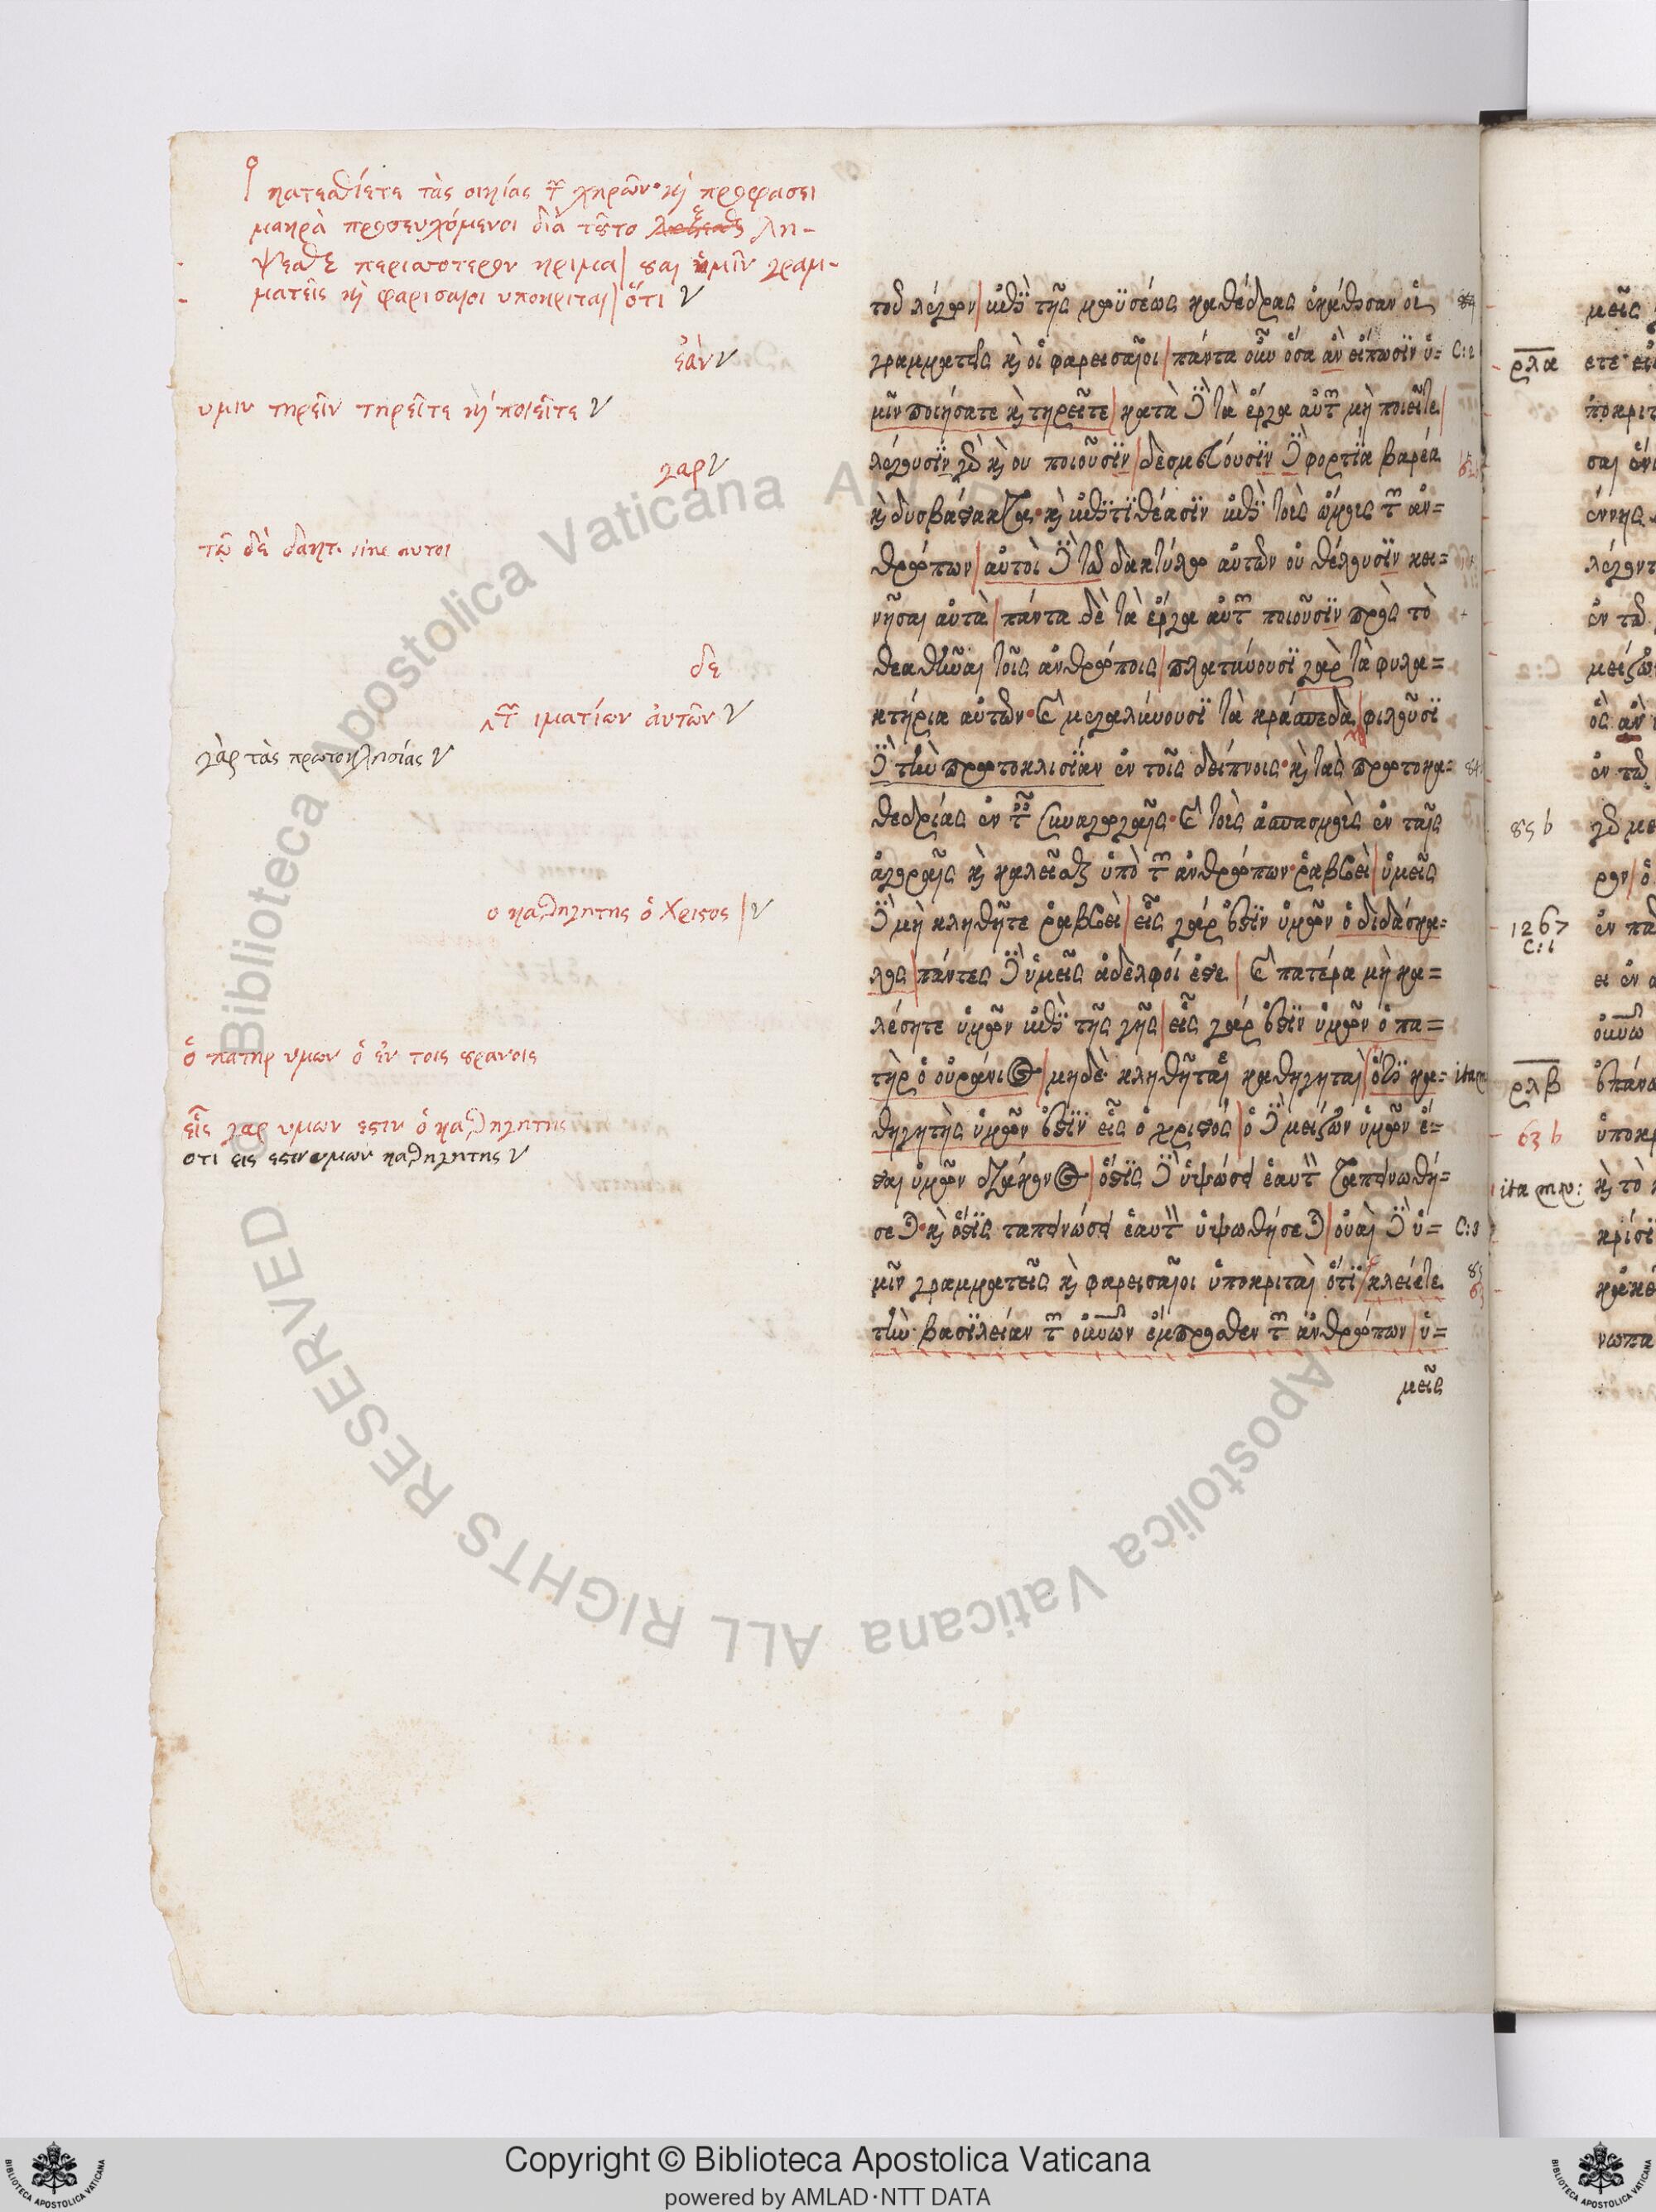 κατεσθίετε τὰς οικίας τ χηρῶν· κὶ προφασει
μακρὰ προσευχόμενοι διὰ τȣτο λη-
ψεσθε περισσοτερον κριμα| ȣαι ὑμῖν γραμ-
ματεῖς κὶ φαρισαιοι υποκριται| ὅτι
ἐὰν
υμιν τηρεῖν τηρεῖτε κὶ ποιεῖτε
γαρ
τῶ δὲ δακτ. sine αυτοι
δε
τ ιματίων ἀυτῶν
γὰρ τὰς πρωτοκλησίας
ο καθηγητης ὁ Χριστος |
ὁ πατηρ υμων ὁ ἐν τοις ȣρανοις
εἷς γαρ υμων εστιν ὁ καθηγητης
οτι εις εστιν υμων καθηγητης
τοῦ λέγων| ἐπὶ τῆς μωϋσέως καθέδρας ἐκάθισαν οἱ
γραμματεῖς κὶ οἱ φαρεισαῖοι| πάντα οὖν ὅσα ἀν εἴπωσϊν ὑ= C:2
μῖν ποιήσατε κὶ τηρεῖτε| κατὰ δὲ τὰ ἔργα αὐτῶν μὴ ποιεῖτε|
λέγουσϊν γὰρ κὶ ου ποιοῦσϊν| δεσμεύουσϊν δὲ φορτία βαρέα
κὶ δυσβάστακτα· κὶ ἐπιτϊθέασϊν ἐπὶ τοὺς ὤμους τῶν ἀν=
θρώπων| αὐτοὶ δὲ τῶ δακτύλω αὐτῶν οὐ θέλουσϊν κει=
νῆσαι αὐτὰ| πάντα δὲ τὰ ἔργα αὐτῶν ποιοῦσϊν πρὸς τὸ
θεαθῆναι τοῖς ἀνθρώποις| πλατύνουσϊ γὰρ τὰ φυλα=
κτήρια αὐτῶν· κὶ μεγαλύνουσϊ τὰ κράσπεδα| φιλοῦσϊ
δὲ τὴν πρωτοκλισϊάν ἐν τοῖς δείπνοις· κὶ τὰς πρωτοκα=
θεδρίας ἐν ταῖς συναγωγαῖς· κὶ τοὺς ἀσπασμοὺς ἐν ταῖς
ἀγοραῖς κὶ καλεῖσθαι ὑπὸ τῶν ἀνθρώπων· ῥαββεὶ| ὑμεῖς
δὲ μὴ κληθῆτε ῥαββεὶ| εἷς γάρ ἐστϊν ὑμῶν ὁ διδάσκα=
λος| πάντες δὲ ὑμεῖς ἀδελφοί ἐστε| κὶ πατέρα μὴ κα=
λέσητε ὑμῶν ἐπὶ τῆς γῆς| εἷς γάρ ἐστϊν ὑμῶν ὁ πα=
τὴρ ὁ οὐράνιος| μηδὲ κληθῆται καθηγηταὶ| ὅτϊ κα=
θηγητὴς ὑμῶν ἐστϊν εἷς ὁ χριστός| ὁ δὲ μείζων ὑμῶν ἔ=
σται ὑμῶν διάκονος| ὅστϊς δὲ ὑψώσει ἑαυτὸν ταπεινωθή=
σεται· κὶ ὅστϊς ταπεινώσει ἑαυτὸν ὑψωθήσεται| οὐαὶ δὲ ὑ= C:3
μῖν γραμματεῖς κὶ φαρεισαῖοι ὑποκριταὶ ὅτϊ κλείετε
τὴν βασϊλείαν τῶν οὐνῶν ἔμπροσθεν τῶν ἀνθρώπων| ὑ=
μεῖς
ρλα
85 b
1267
C:1
ρλβ
63 b
Copyright © Biblioteca Apostolica Vaticana
powered by AMLAD·NTT DATA